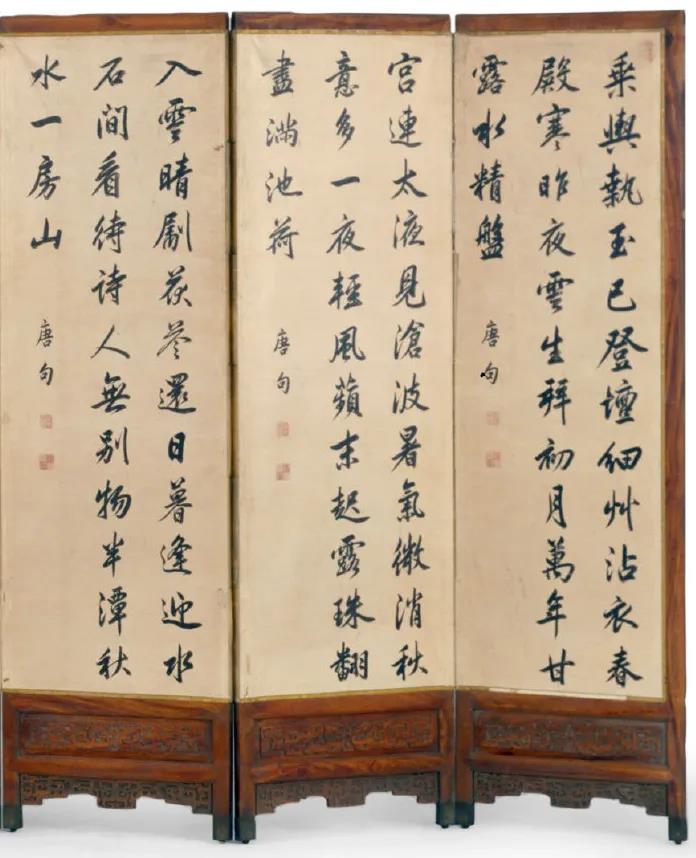 乘輿執玉已登壇細艸沾衣春
殿寒昨夜雲生拜初月萬年甘
露水精盤
唐句
宮連太液見滄波暑氣微消秋
意多一夜輕風蘋末起露珠翻
盡滿池荷
唐句
入雲晴劚茯苓還日暮逢迎水
石間看待詩人無別物半潭秋
水一房山
唐句